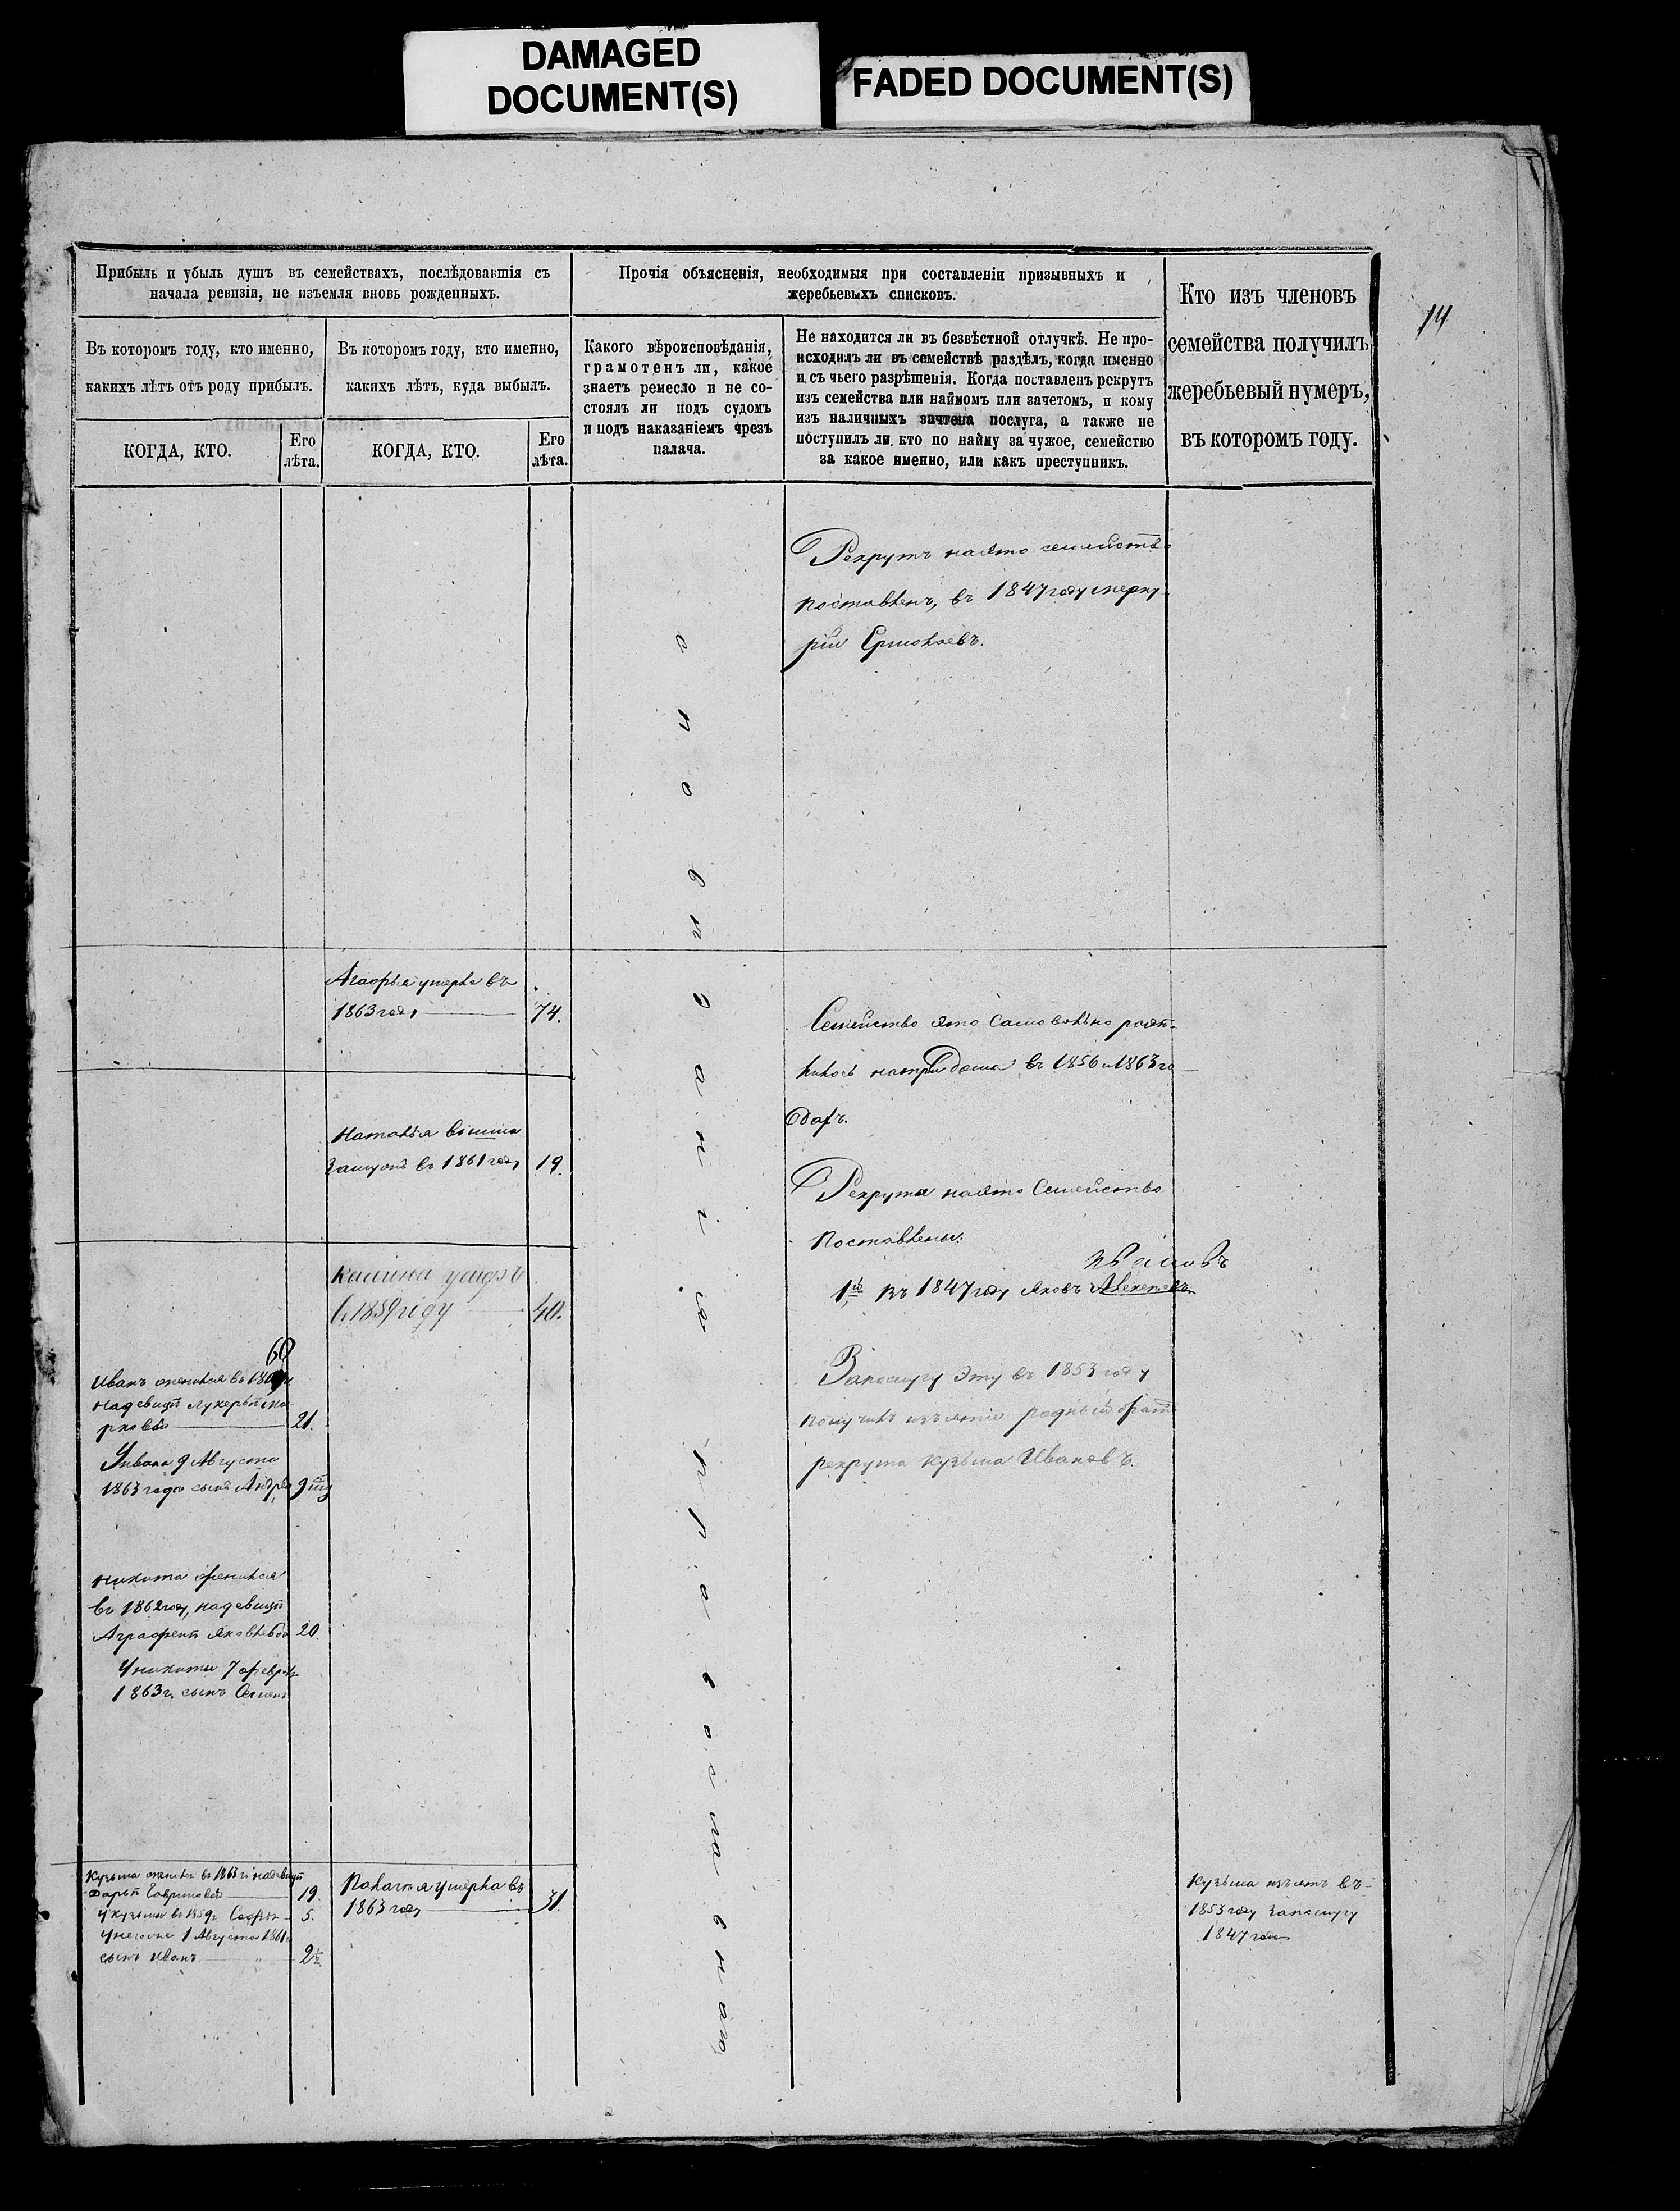 DAMAGED
DOCUMENT(S)
FADED DOCUMENT(S)
14
Прибыль и убыль душъ въ семействахъ, послѣдовавшія съ
начала ревизіи, не изъемля вновь рожденныхъ.
Въ которомъ году, кто именно,
какихъ лѣтъ отъ роду прибылъ.
КОГДА, КТО.
Его
лѣта.
Въ которомъ году, кто именно,
какихъ лѣтъ, куда выбылъ.
КОГДА, КТО.
Его
лѣта.
Прочія объясненія, необходимыя при составленіи призывныхъ и
жеребьевыхъ списковъ.
Какого вѣроисповѣданія,
грамотенъ ли, какое
знаетъ ремесло и не со-
стоялъ ли подъ судомъ
и подъ наказаніемъ чрезъ
палача.
Не находится ли въ безвѣстной отлучкѣ. Не про-
исходилъ ли въ семействѣ раздѣлъ, когда именно
и съ чьего разрѣшенія. Когда поставленъ рекрутъ
изъ семейства или наймомъ или зачетомъ, и кому
изъ наличныхъ зачтена послуга, а также не
поступилъ ли кто по найму за чужое, семейство
за какое именно, или какъ преступникъ.
Кто изъ членовъ
семейства получилъ
жеребьевый нумеръ,
въ которомъ году.
Рекрутъ наято семейство
поставленъ, въ 1847 году мерку
рій Ермолаевъ.
Агафья умерла въ
1863 году 74.
Семейство это самовольно раздѣ-
лилось натри дома въ 1856 и 1863 го
дахъ.
Наталья вышла
замужъ въ 1861 году 19.
Рекруты наэто Семейство
Поставлены:
Ивановъ
1й Въ 1847 году Яковъ
Калина умеръ
въ 1859 году 40.
За послугу эту въ 1853 году
получилъ изъятіе родный братъ
рекрута Кузьма Ивановъ.
60
Иванъ женился въ 18
надевицѣ Лукерьѣ Ма
рковой 21.
У Ивана 9 Августа
1863 года сынъ Андрей 9
Никита женился
въ 1862 году, надевицѣ
Аграфенѣ Яковлевой 20.
У никиты 7 февраля
1863 г. сынъ Семенъ
Кузьма женился въ 1863 г. надевицѣ
Дарьѣ Гавриловой 19.
У Кузьмы въ 1859 г. Софья 5.
У негоже 1 Августа 1861 г.
сынъ Иванъ 2½
Палагея умерла въ
1863 году 31.
Кузьма изъятъ въ
1853 году запослугу
1847 года
исповѣданія православнаго